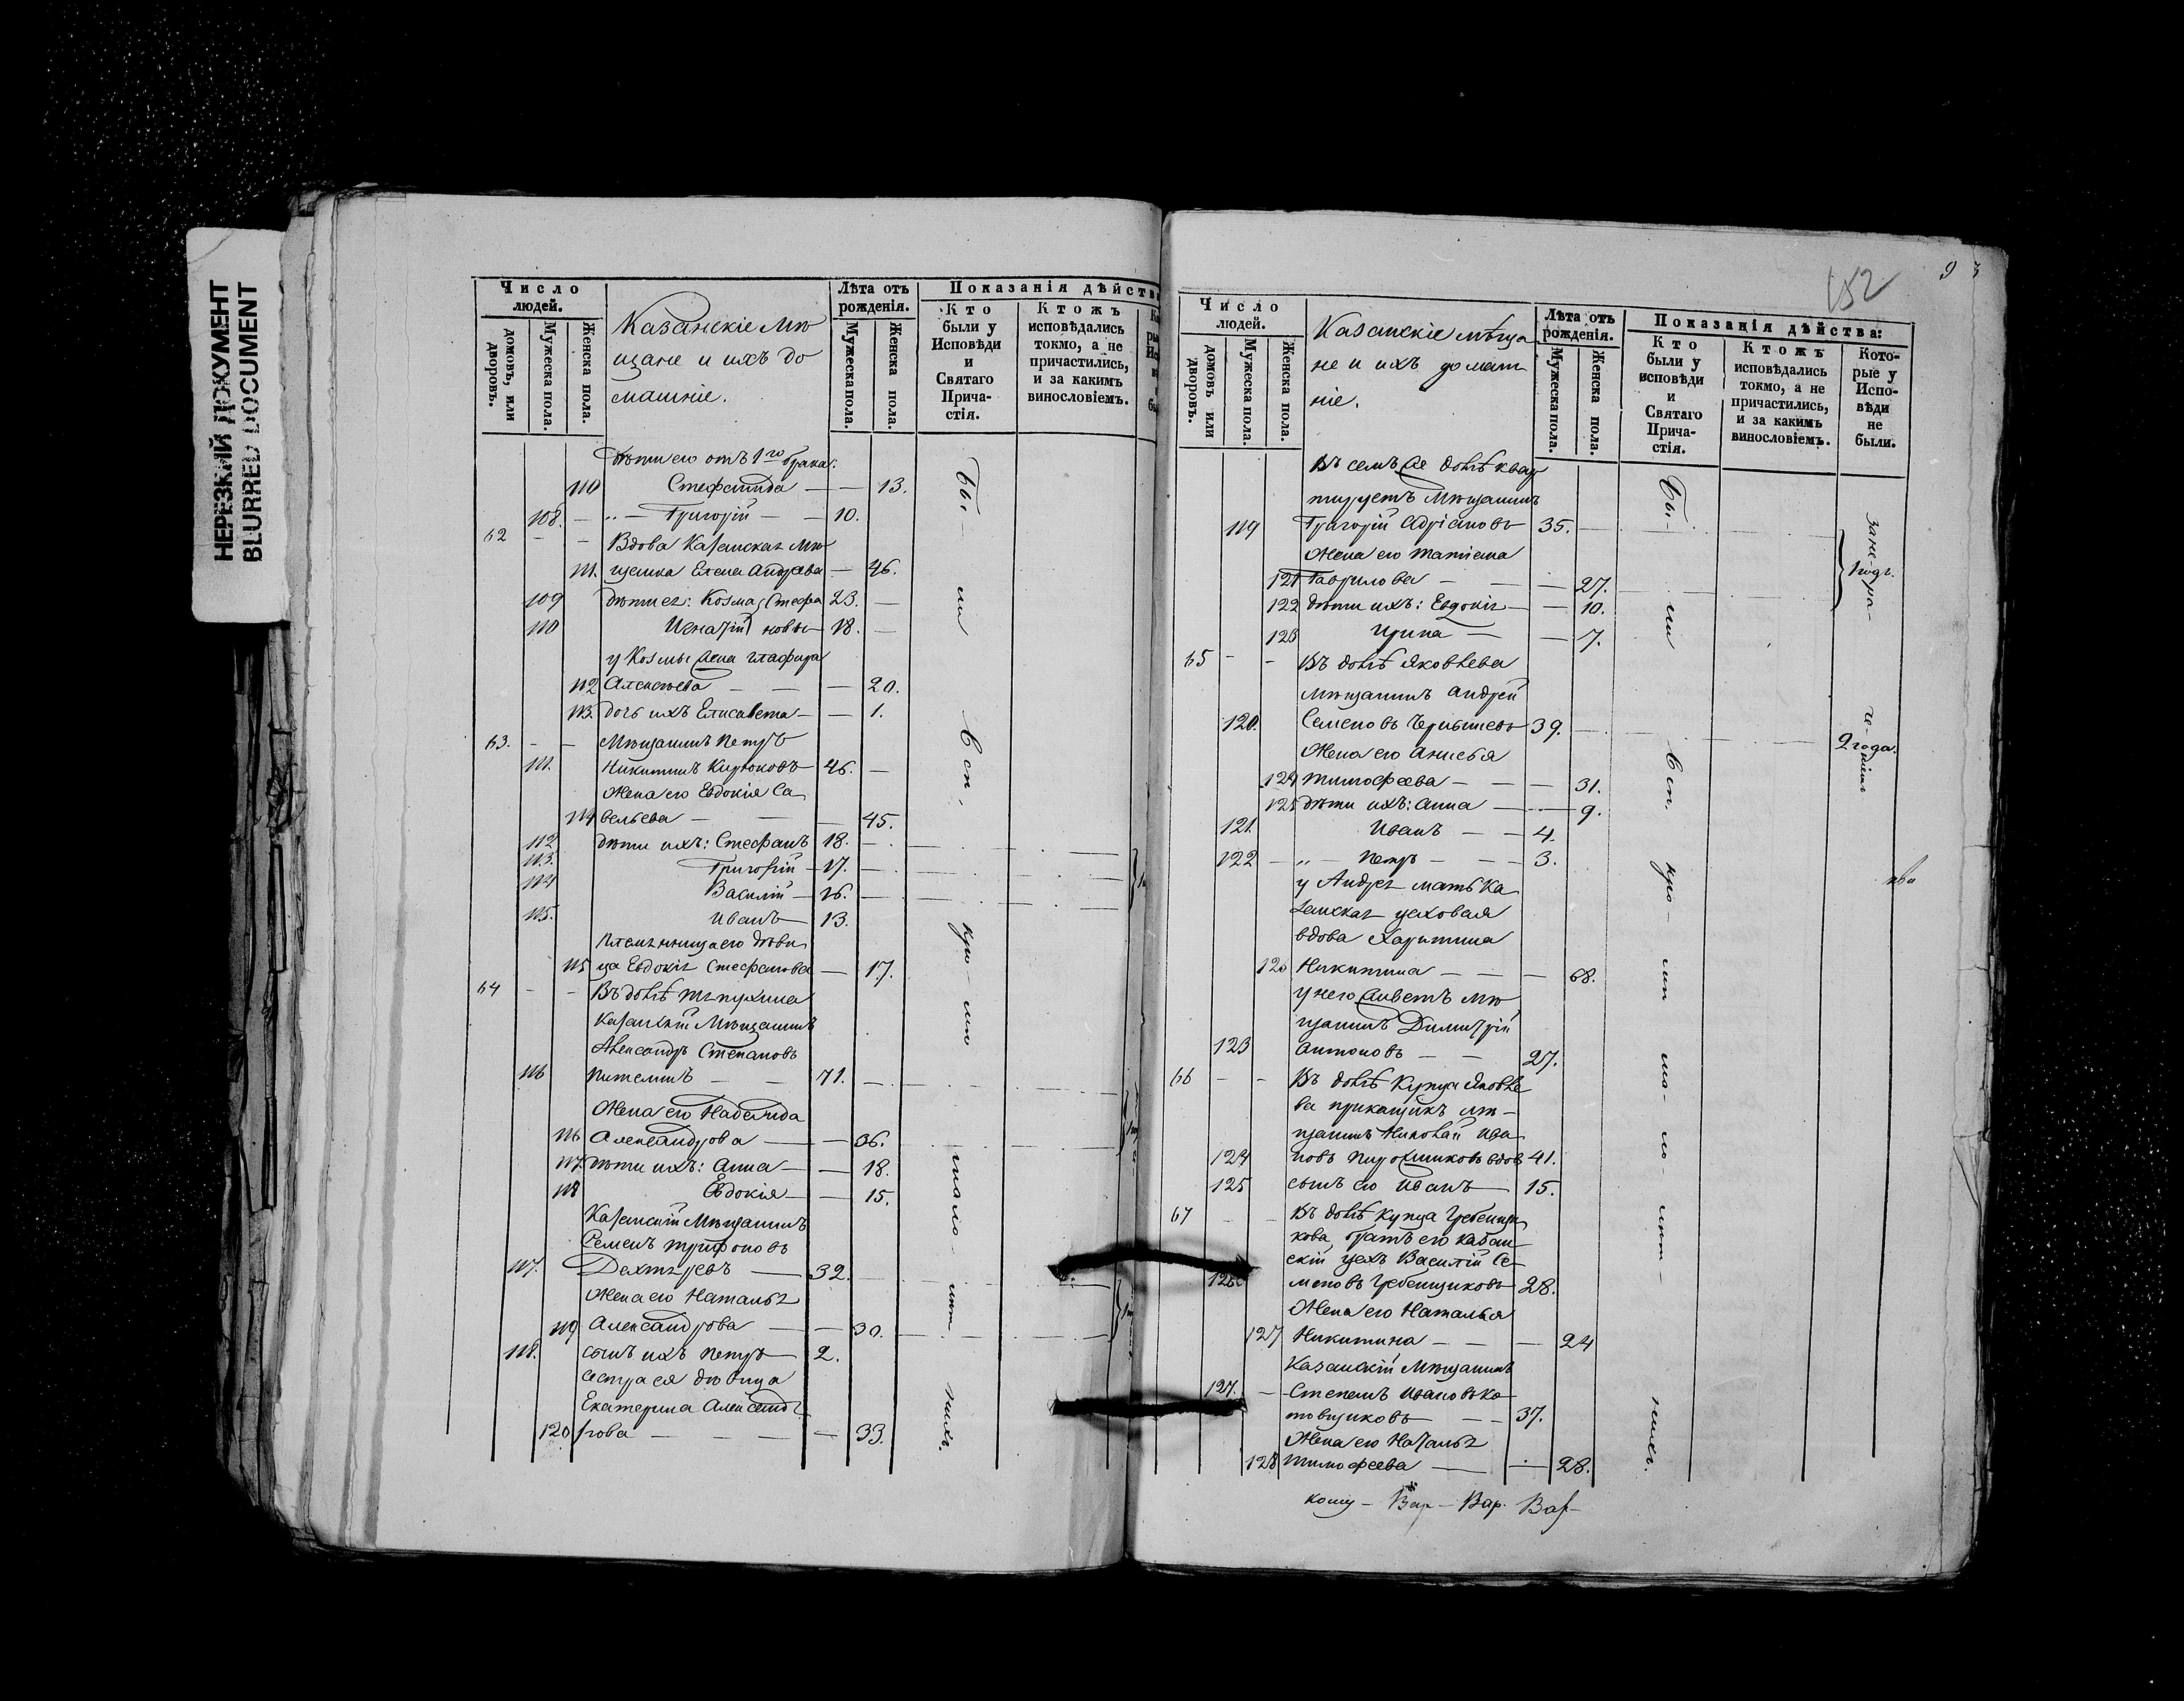 НЕРЕЗКИЙ ДОКУМЕНТ
BLURRED DOCUMENT
Число людей.
домовъ, или дворовъ.
Мужеска пола.
Женска пола.
Казанскіе Мѣ
щане и ихъ до
машніе.
Лѣта отъ рожденія.
Мужеска пола.
Женска пола.
Показанія дѣйств
Кто были у Исповѣди и Святаго Прича-стія.
Ктожъ исповѣдались токмо, а не причастились, и за какимъ винословіемъ.
Дѣти его отъ 1го брака:
110 Стефанида — — 13.
108. — „ — Григорій — — 10.
62 - - Вдова Казанская Мѣ
111. щанка Елена Андреева — 46.
109 Дѣти ея: Козма Стефа 23. —
110 Игнатій новы — 18. —
у Козмы жена Глафира
112 Алексѣева — — — 20.
113. дочь ихъ Елисавета — — 1.
63. - - Мѣщанинъ Петръ
111. Никитинъ Кирюковъ 46. —
Жена его Евдокія Са
114 вельева — — — 45.
112 Дѣти ихъ: Стефанъ 18. —
113. Григорій — 17. —
114 Василій — 16. —
115. Иванъ — 13.
Племянница его дѣви
115 ца Евдокія Стефанова — 17.
64 - - Въ домѣ
Казанскій Мѣщанинъ
Александръ Степановъ
116 — — 71. —
Жена его Надежда
116 Александрова — — 36.
117. Дѣти ихъ: Анна — — 18.
118 Евдокія — — 15.
Казанскій Мѣщанинъ
Семенъ Трифоновъ
117. Дехтяревъ — 32.
Жена его Наталья
119 Александрова — — 30.
118. сынъ ихъ Петръ — 2.
сестра ея дѣвица
Екатерина Александ
120 рова — — — — 33.
Бы-
ли
Исп.
кро-
мѣ
мало-
лѣт.
нихъ.
152
93
Число людей.
домовъ или дворовъ.
Мужеска пола.
Женска пола.
Казанскіе мѣща
не и ихъ домаш
ніе.
Лѣта отъ рожденія.
Мужеска пола.
Женска пола.
Показанія дѣйства:
Кто были у исповѣди и Святаго Прича-стія.
Ктожъ исповѣдались токмо, а не причастились, и за какимъ винословіемъ.
Кото-рые у Испо-вѣди не были.
Въ семъ же домѣ квар
тируетъ Мѣщанинъ
119 Григорій Адріановъ 35. —
Жена его Татіана
121 Гаврилова — — — 27.
122 дѣти ихъ: Евдокія — — 10.
123 Ирина — — 7.
65 - - Въ домѣ Яковлева
Мѣщанинъ Андрей
120. Семеновъ Чернышевъ 39.
Жена его Анисья
124 Тимофеева — — — 31.
125 дѣти ихъ: Анна — — 9.
121. Иванъ — — 4.
122 — „ — Петръ — — 3.
у Андрея мать Ка
занская цеховая
вдова Харитина
126 Никитина — — — 68.
у него живетъ Мѣ
щанинъ Димитрій
123 Антоновъ — — 27.
66 - - Въ домѣ Купца Яковле
ва прикащикъ мѣ-
щанинъ Николай Ива
124 новъ Пирожниковъ вдов 41.
125 сынъ его Иванъ — 15.
67 - - Въ домѣ Купца Гребенщи
кова, братъ его Казан
скій цех. Василій Се
126 меновъ Гребенщиковъ — 28.
Жена его Наталья
127 Никитина — — — 24
Казанскій Мѣщанинъ
127. — Степанъ Ивановъ Ко
товщиковъ — — 37.
Жена его Наталья
128 Тимофеева — — 28.
Бы-
ли
Исп.
кро-
мѣ
ма-
ло-
лѣт-
нихъ.
1 годъ.
2 года.
кому — Вар — Вар. Вар —